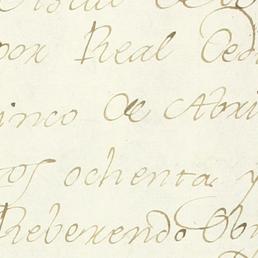 por Real Ced
inco de Abri
tos ochenta y
Reverendo Obi